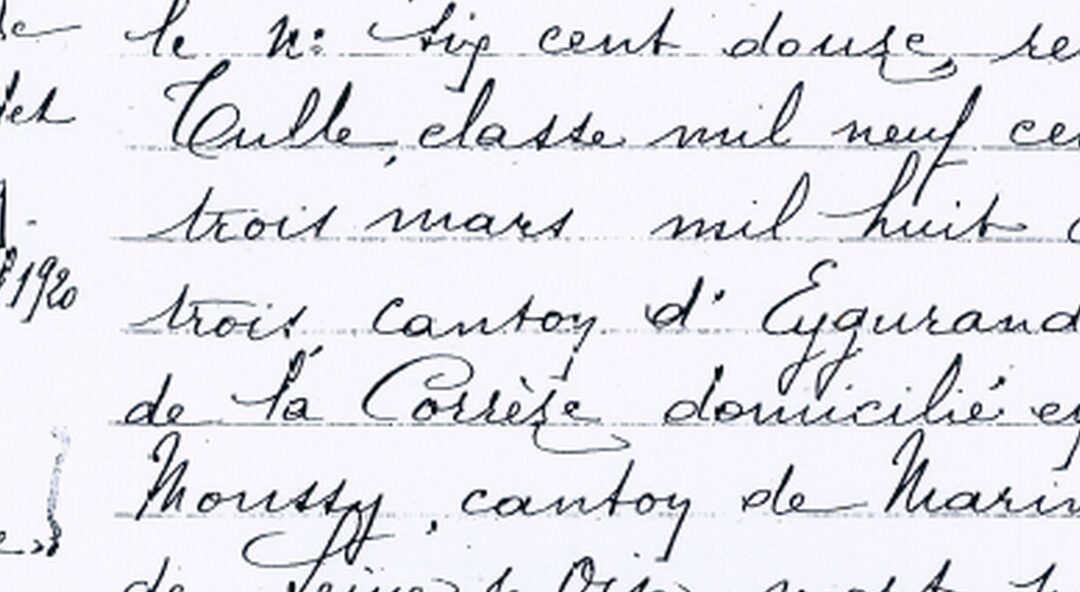 le n: six cent douze, re
Tulle, classe mil neuf ce
trois mars mil huit c
1920
trois, canton d'Eygurand
de la Corrèze domicilié en
Moussy, canton de Marin
de Seine & Oise